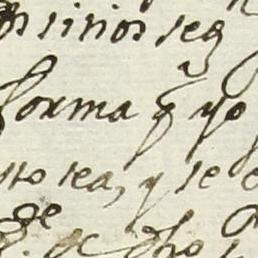 sitios seg
forma q yo
sto sea, y se
de dho